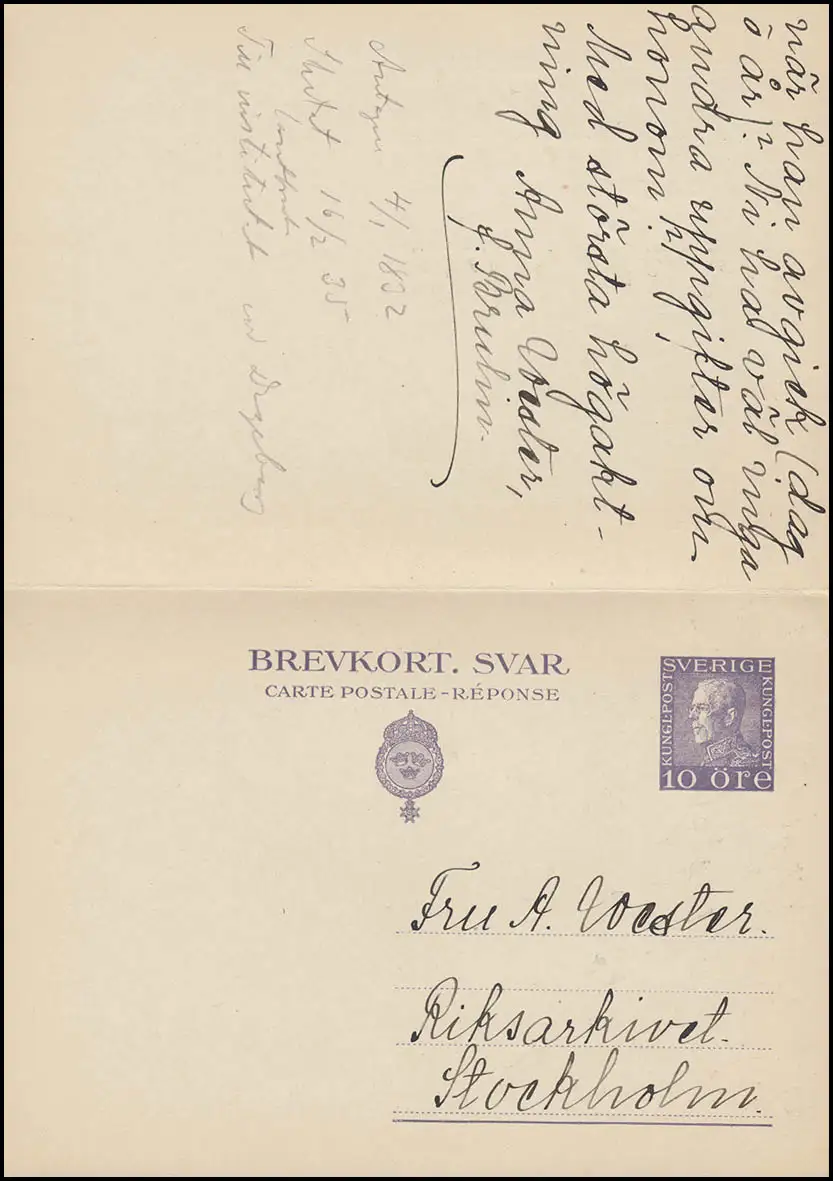 när han avgick (dag
ö år)? Ni har väl inga
andra uppgifter om
honom?
Med största högakt-
ning Anna Wester,
f. Bruhn.
4/1 1832
16/2 35
Till institutet
BREVKORT. SVAR
CARTE POSTALE-RÉPONSE
SVERIGE
KUNGL·POST
KUNGL·POST
10 öre
Fru A. Wester.
Riksarkivet.
Stockholm.